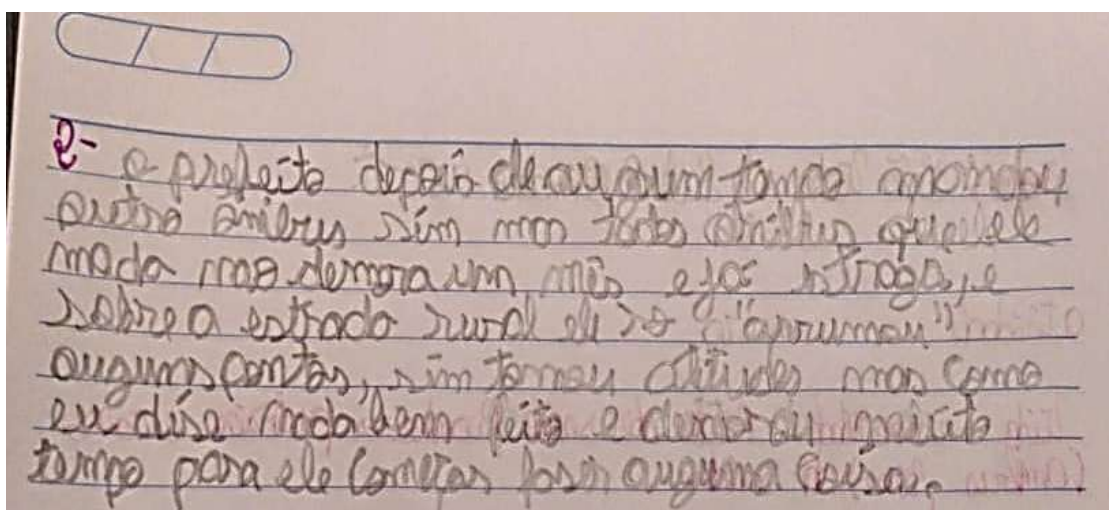 2- o prefeito depois de augum tempo mandou
outro ônibus sim mas todos ônibus que ele
mada não demora um mês e já istraga, e
sobre a estrada rural ele só "arrumou"
auguns pontos, sim tomou atitudes mas como
eu dise nada bem feito e demorou muito
tempo para ele começar faser auguma coisa.